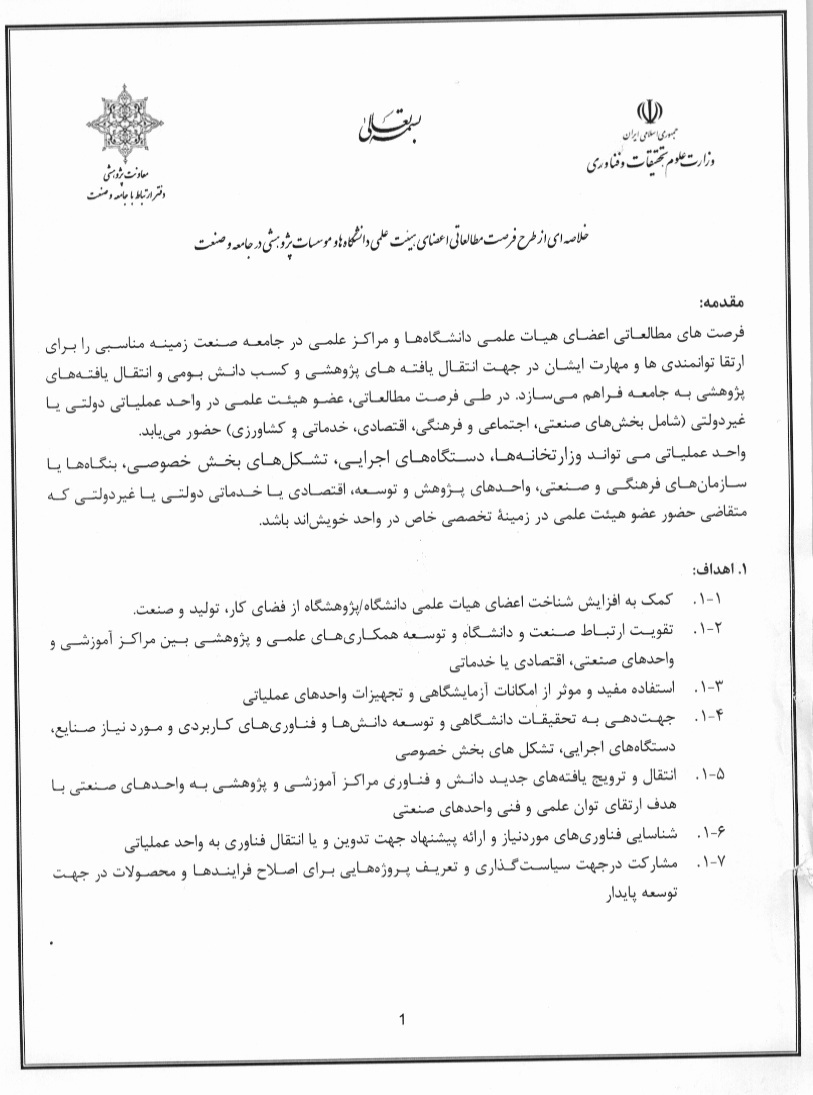 جمهوری اسلامی ایران
وزارت علوم، تحقیقات و فناوری
بسمه تعالی
معاونت پژوهشی
دفتر ارتباط با جامعه و صنعت
خلاصه ای از طرح فرصت مطالعاتی اعضای هیئت علمی دانشگاه ها و موسسات پژوهشی در جامعه و صنعت
مقدمه:
فرصت های مطالعاتی اعضای هیات علمی دانشگاه‌ها و مراکز علمی در جامعه صنعت زمینه مناسبی را برای
ارتقا توانمندی ها و مهارت ایشان در جهت انتقال یافته های پژوهشی و کسب دانش بومی و انتقال یافته‌های
پژوهشی به جامعه فراهم می‌سازد. در طی فرصت مطالعاتی، عضو هیئت علمی در واحد عملیاتی دولتی یا
غیردولتی (شامل بخش‌های صنعتی، اجتماعی و فرهنگی، اقتصادی، خدماتی و کشاورزی) حضور می‌یابد.
واحد عملیاتی می تواند وزارتخانه‌ها، دستگاه‌های اجرایی، تشکل‌های بخش خصوصی، بنگاه‌ها یا
سازمان‌های فرهنگی و صنعتی، واحدهای پژوهش و توسعه، اقتصادی یا خدماتی دولتی یا غیردولتی که
متقاضی حضور عضو هیئت علمی در زمینهٔ تخصصی خاص در واحد خویش‌اند باشد.
۱. اهداف:
۱-۱. کمک به افزایش شناخت اعضای هیات علمی دانشگاه/پژوهشگاه از فضای کار، تولید و صنعت.
۱-۲. تقویت ارتباط صنعت و دانشگاه و توسعه همکاری‌های علمی و پژوهشی بین مراکز آموزشی و
واحدهای صنعتی، اقتصادی یا خدماتی
۱-۳. استفاده مفید و موثر از امکانات آزمایشگاهی و تجهیزات واحدهای عملیاتی
۱-۴. جهت‌دهی به تحقیقات دانشگاهی و توسعه دانش‌ها و فناوری‌های کاربردی و مورد نیاز صنایع،
دستگاه‌های اجرایی، تشکل های بخش خصوصی
۱-۵. انتقال و ترویج یافته‌های جدید دانش و فناوری مراکز آموزشی و پژوهشی به واحدهای صنعتی با
هدف ارتقای توان علمی و فنی واحدهای صنعتی
۱-۶. شناسایی فناوری‌های موردنیاز و ارائه پیشنهاد جهت تدوین و یا انتقال فناوری به واحد عملیاتی
۱-۷. مشارکت درجهت سیاست‌گذاری و تعریف پروژه‌هایی برای اصلاح فرایندها و محصولات در جهت
توسعه پایدار
1